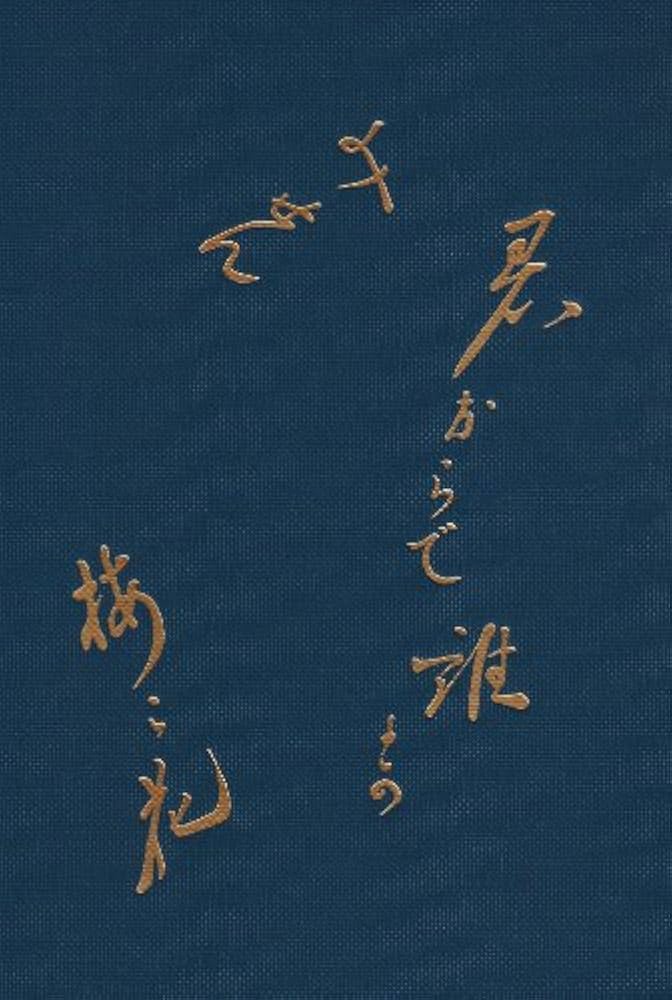 君ならで誰にか
みせん
梅の花